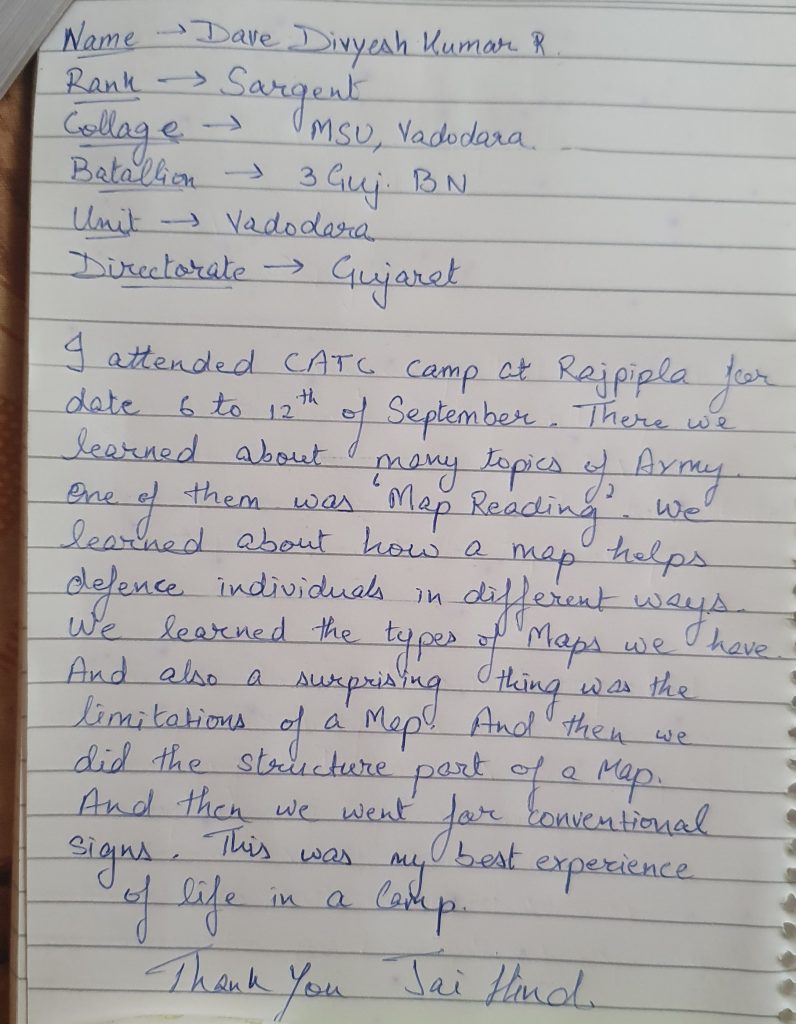 Name → Dave Divyesh Kumar R.
Rank → Sargent
Collage → MSU, Vadodara.
Batallion → 3 Guj. BN
Unit → Vadodara
Directorate → Gujarat
I attended CATC camp at Rajpipla for
date 6 to 12th of September. There we
learned about many topics of Army.
One of them was 'Map Reading'. We
learned about how a map helps
defence individuals in different ways.
We learned the types of Maps we have.
And also a surprising thing was the
limitations of a Map. And then we
did the structure part of a Map.
And then we went for conventional
signs. This was my best experience
of life in a Camp.
Thank You Jai Hind.